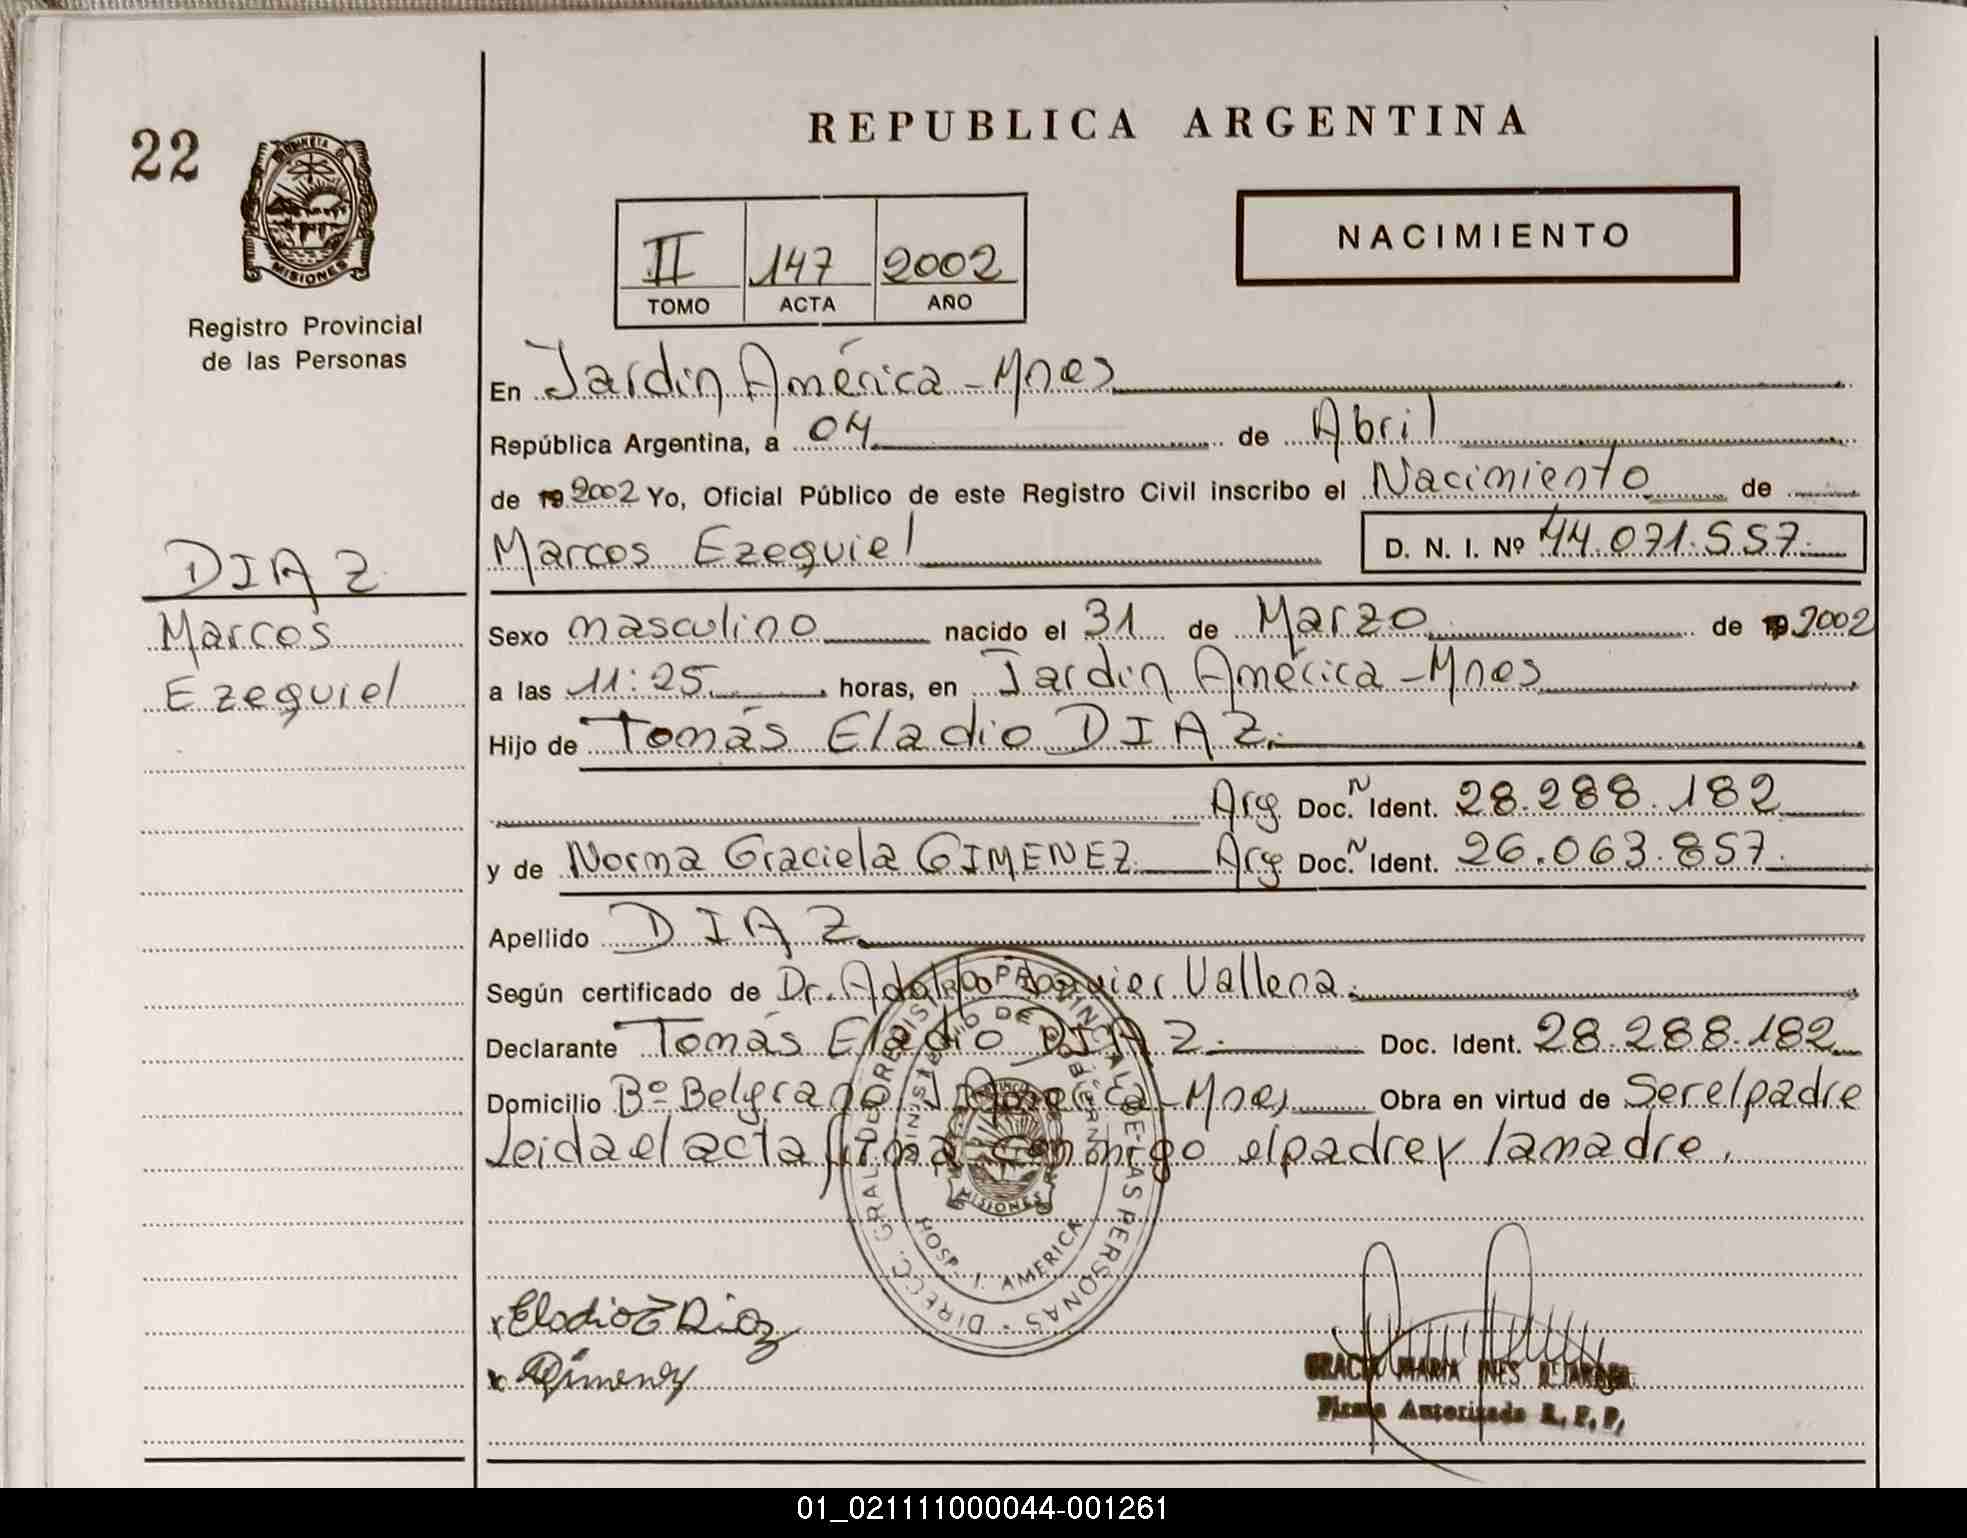 REPUBLICA ARGENTINA
22
PROVINCIA DE
MISIONES
Registro Provincial
de las Personas
II 147 2002
TOMO ACTA AÑO
NACIMIENTO
En Jardin América - Mnes
República Argentina, a 04 de Abril
de 19 2002 Yo, Oficial Público de este Registro Civil inscribo el Nacimiento de
Marcos Ezequiel D. N. I. Nº 44.071.557.
DIAZ
Marcos
Ezequiel
Sexo masculino nacido el 31 de Marzo de 19 2002
a las 11:25 horas, en Jardin América - Mnes
Hijo de Tomás Eladio DIAZ.
Arg Doc. N Ident. 28.288.182
y de Norma Graciela GIMENEZ Arg Doc. N Ident. 26.063.857.
Apellido DIAZ
Según certificado de Dr. Adolfo Vallena.
Declarante Tomás Eladio DIAZ. Doc. Ident. 28.288.182
Domicilio Bº Belgrano J. América - Mnes Obra en virtud de Ser el padre
Leida el acta firma conmigo el padre y la madre.
DIRECC. GRAL. DE REGISTRO PROVINCIAL DE LAS PERSONAS
MINISTERIO DE GOBIERNO
MISIONES
HOSP. J. AMERICA
Eladio T Diaz
Gimenez
MARIA INES
Firma Autorizada R. P. P.
01_021111000044-001261